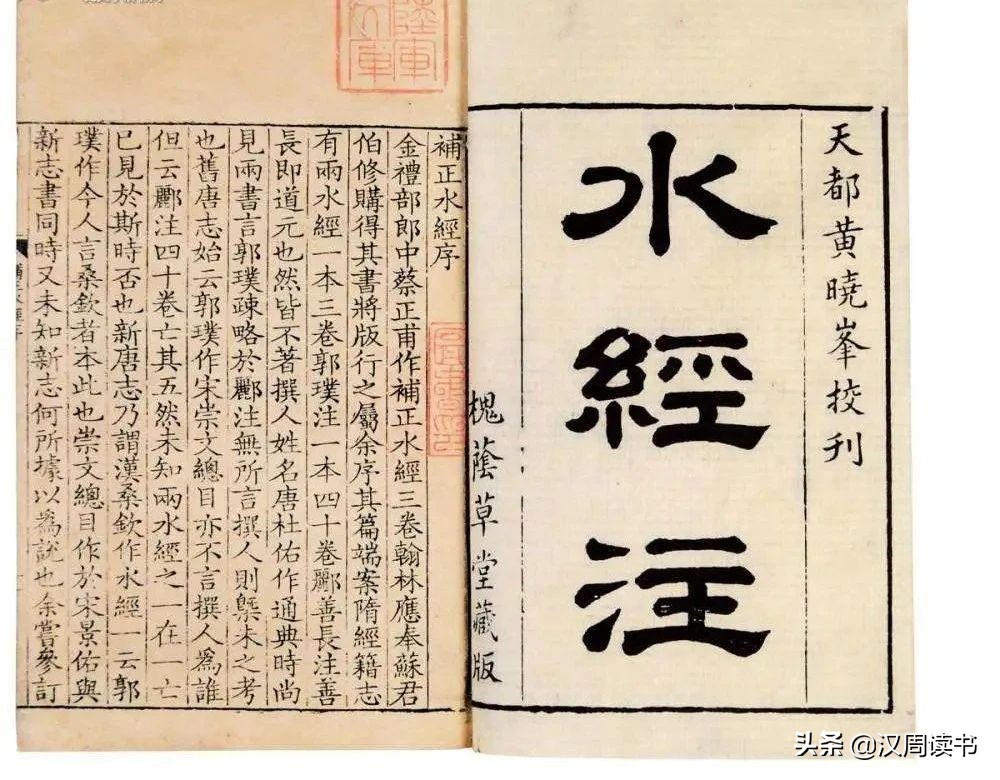 天都黃曉峯挍刊
水經注
槐蔭草堂藏版
補正水經序
金禮部郎中蔡正甫作補正水經三卷翰林應奉蘇君
伯修購得其書將版行之屬余序其篇端案隋經籍志
有兩水經一本三卷郭璞注一本四十卷酈善長注善
長即道元也然皆不著撰人姓名唐杜佑作通典時尚
見兩書言郭璞疎略於酈注無所言撰人則槩未之考
也舊唐志始云郭璞作宋崇文總目亦不言撰人為誰
但云酈注四十卷亡其五然未知兩水經之一在一亡
已見於斯時否也新唐志乃謂漢桑欽作水經一云郭
璞作今人言桑欽者本此也崇文總目作於宋景佑與
新志書同時又未知新志何所據以為說也余嘗參訂
頭条 @汉周读书